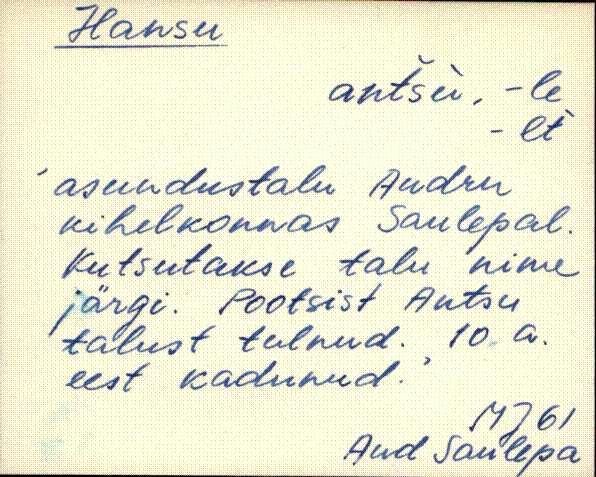 Hansu
antšù, -le
-lt
'asundustalu Audru
kihelkonnas Saulepal.
Kutsutakse talu nime
järgi. Pootsist Antsu
talust tulnud. 10 a.
eest kadunud.'
MJ 61
Aud Saulepa